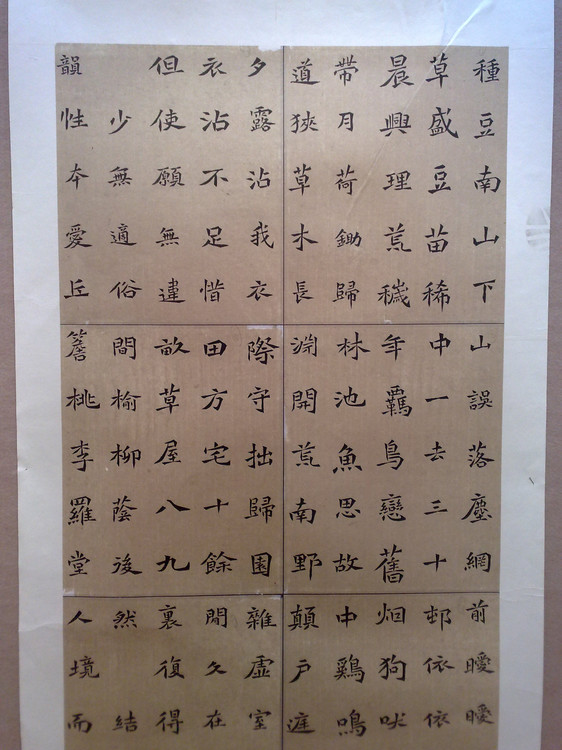 種豆南山下
草盛豆苗稀
晨興理荒穢
帶月荷鋤歸
道狹草木長
夕露沾我衣
衣沾不足惜
但使願無違
少無適俗
韻性本愛丘
山誤落塵網
中一去三十
年羈鳥戀舊
林池魚思故
淵開荒南野
際守拙歸園
田方宅十餘
畝草屋八九
間榆柳蔭後
簷桃李羅堂
前曖曖
邨依依
烟狗吠
中鷄鳴
顛戶庭
雜虛室
閒久在
裏復得
然 結
人境而